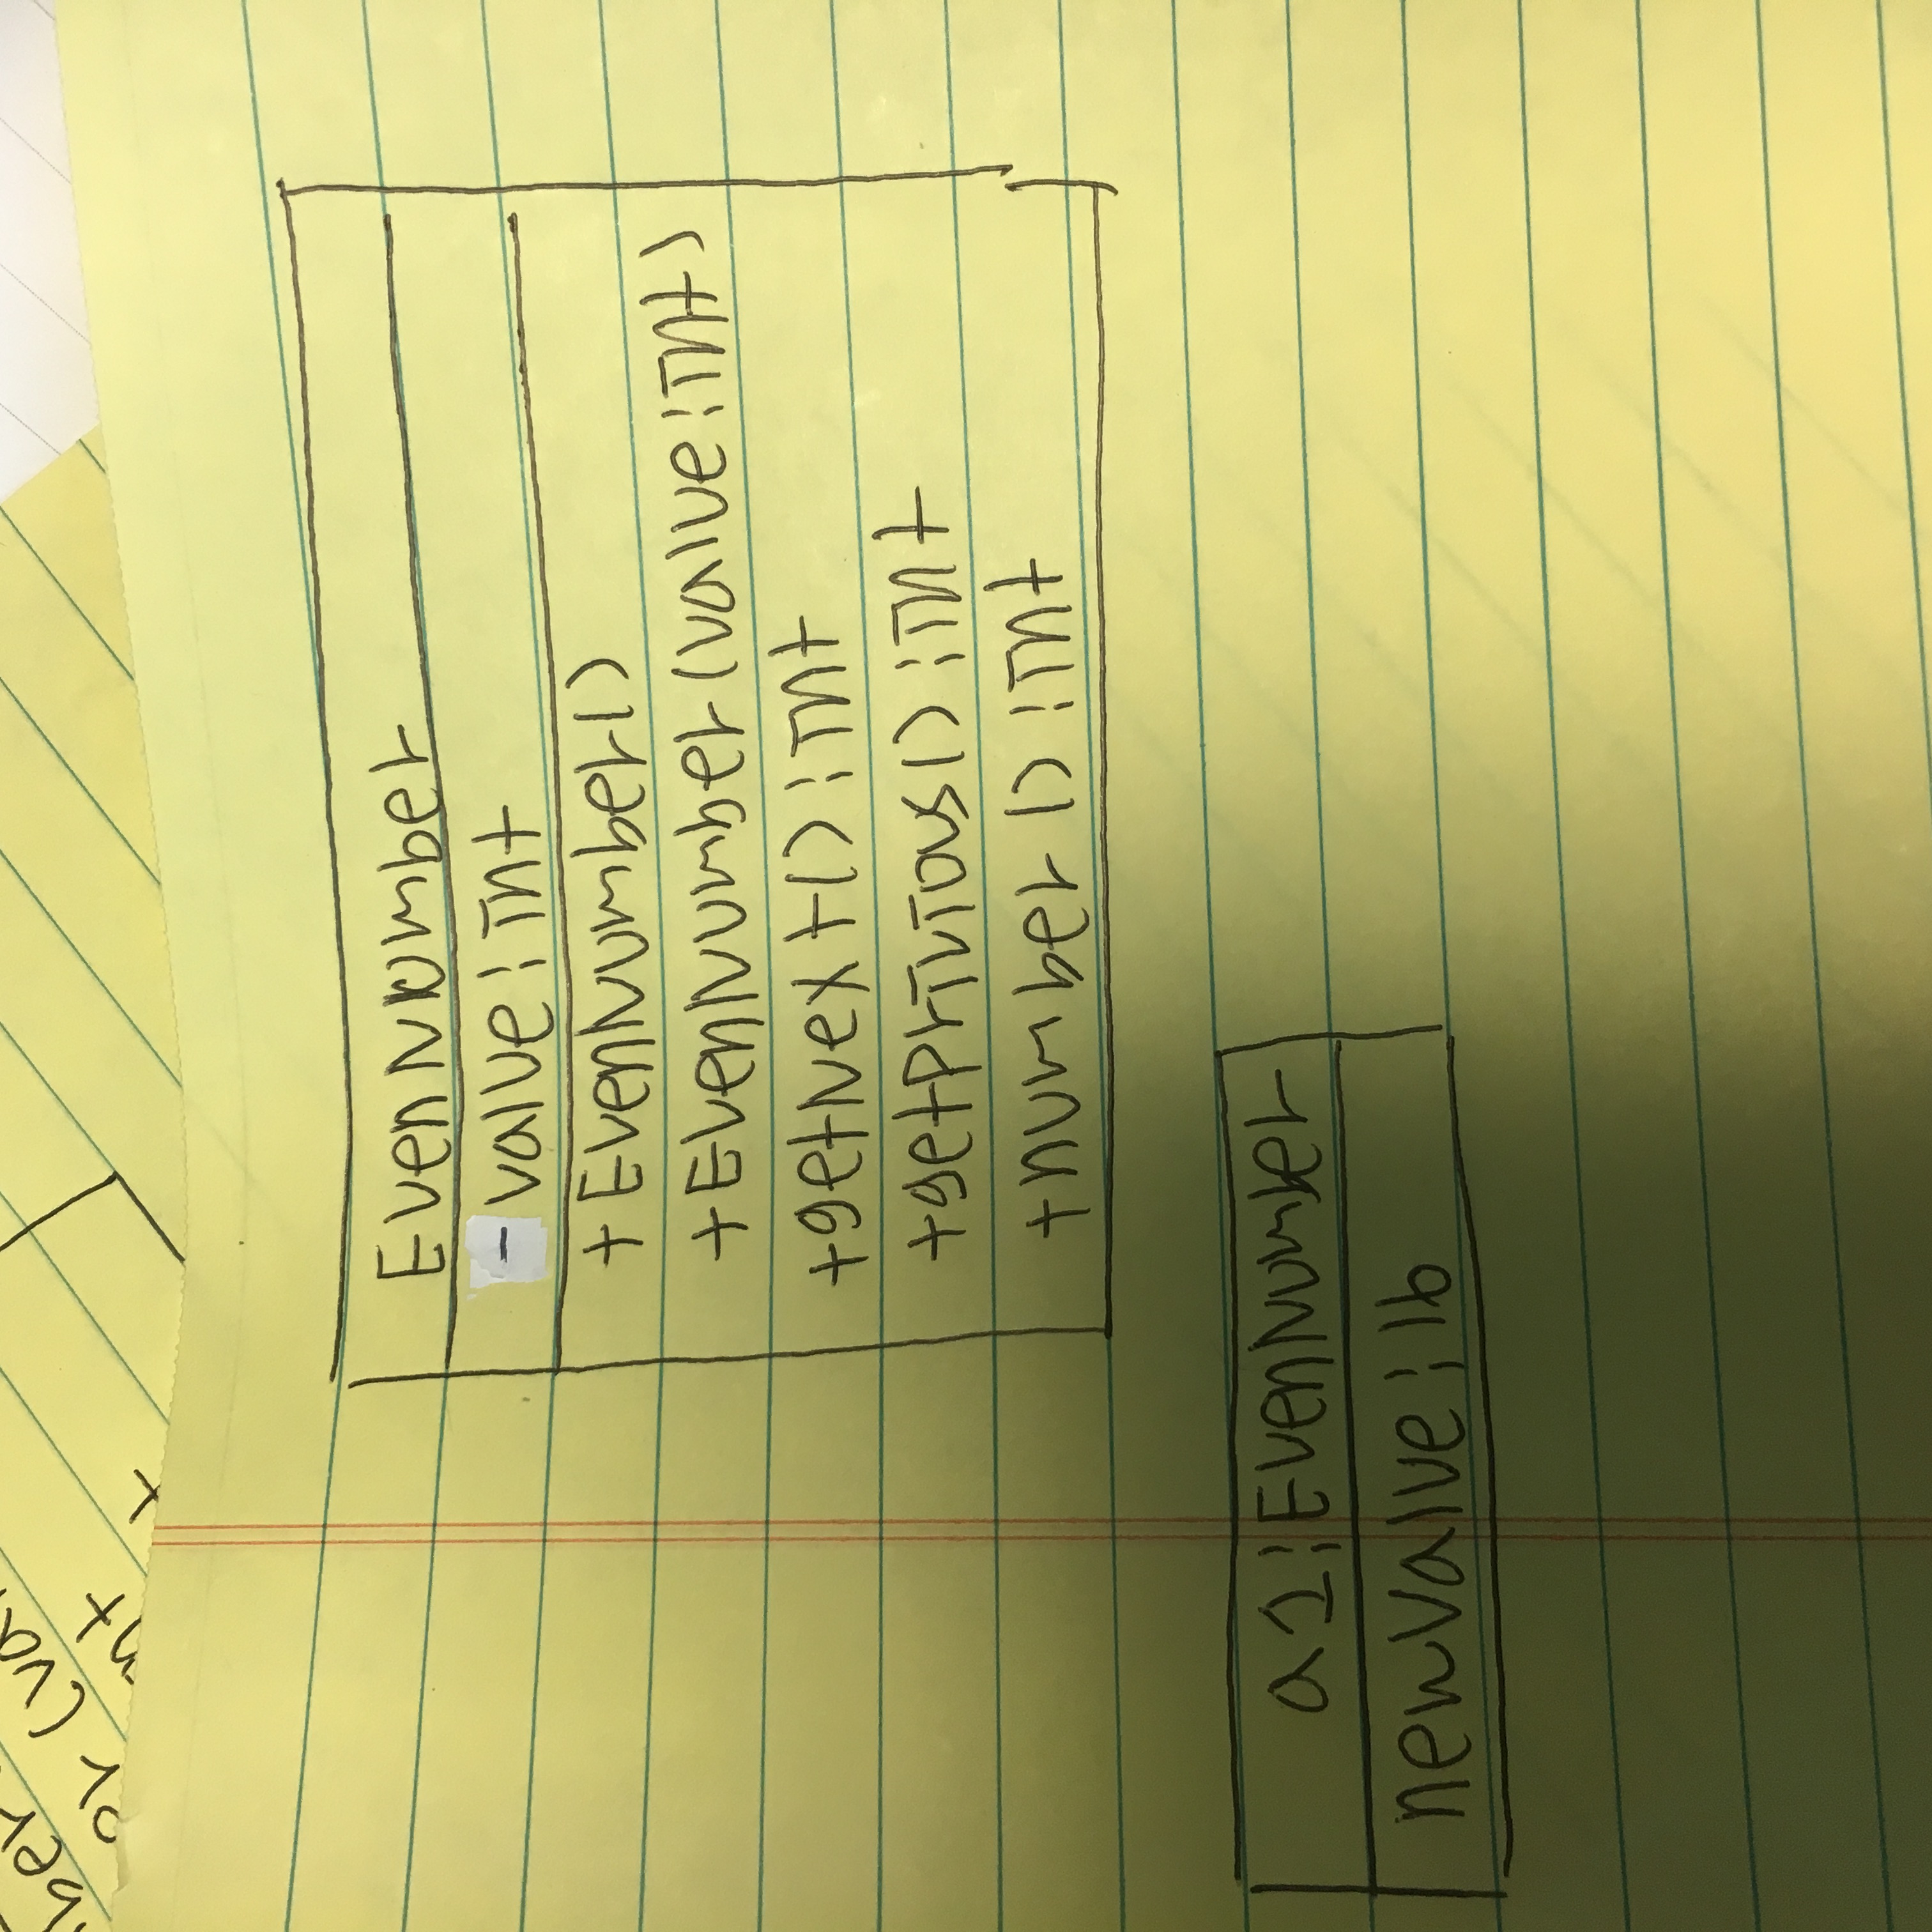 (va
nt
EvenNumber
- value: int
+ EvenNumber()
+EvenNumber(value:int)
+getNext():int
+getPrivious():int
+number():int
a1:EvenNumber
newValue:16